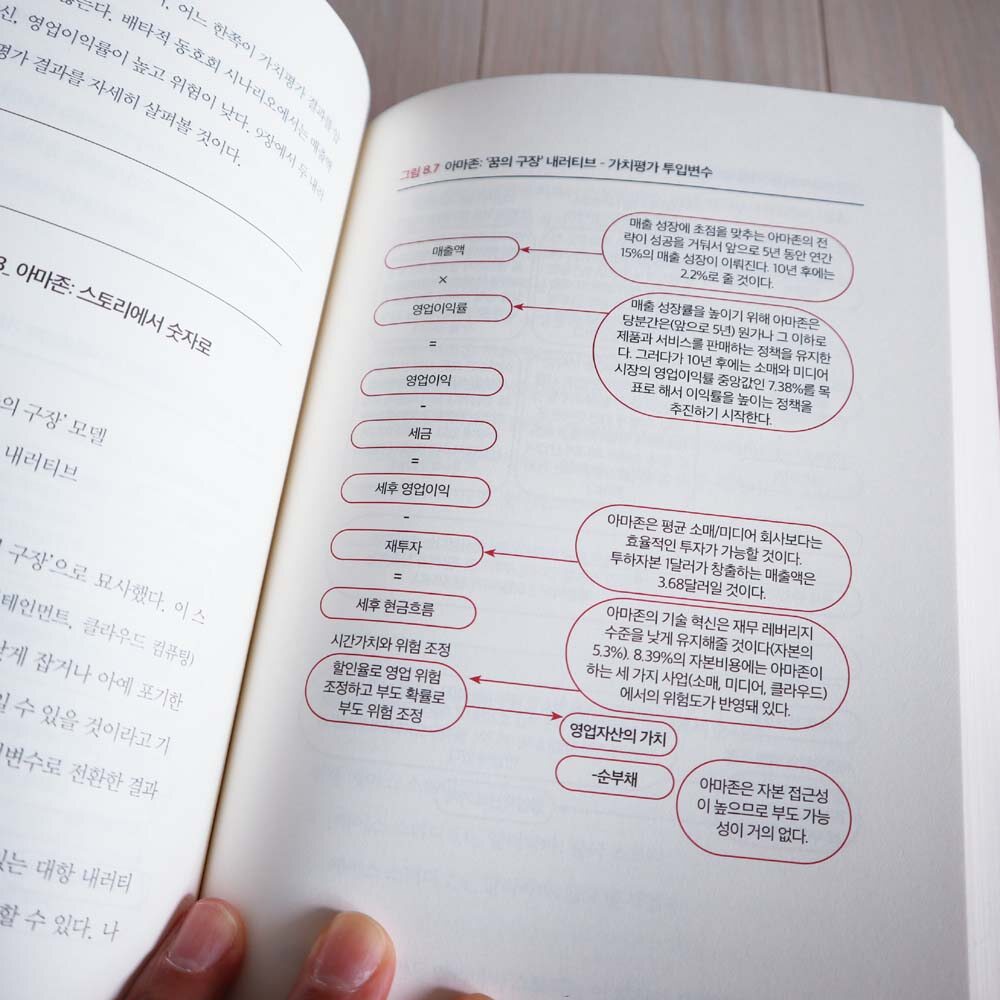 어느 한쪽이 가치평가 결과를
않는다. 배타적 동호회 시나리오에서는 매출액
신, 영업이익률이 높고 위험이 낮다. 9장에서 두 내러
평가 결과를 자세히 살펴볼 것이다.
3_ 아마존: 스토리에서 숫자로
의 구장' 모델
내러티브
구장'으로 묘사했다. 이 스
테인먼트, 클라우드 컴퓨팅)
낮게 잡거나 아예 포기한
일 수 있을 것이라고 기
변수로 전환한 결과
있는 대항 내러티
할 수 있다. 나
그림 8.7 아마존: '꿈의 구장' 내러티브 - 가치평가 투입변수
매출액
매출 성장에 초점을 맞추는 아마존의 전
략이 성공을 거둬서 앞으로 5년 동안 연간
15%의 매출 성장이 이뤄진다. 10년 후에는
2.2%로 줄 것이다.
×
영업이익률
매출 성장률을 높이기 위해 아마존은
당분간은(앞으로 5년) 원가나 그 이하로
제품과 서비스를 판매하는 정책을 유지한
다. 그러다가 10년 후에는 소매와 미디어
시장의 영업이익률 중앙값인 7.38%를 목
표로 해서 이익률을 높이는 정책을
추진하기 시작한다.
=
영업이익
-
세금
=
세후 영업이익
-
재투자
아마존은 평균 소매/미디어 회사보다는
효율적인 투자가 가능할 것이다.
투하자본 1달러가 창출하는 매출액은
3.68달러일 것이다.
=
세후 현금흐름
시간가치와 위험 조정
할인율로 영업 위험
조정하고 부도 확률로
부도 위험 조정
아마존의 기술 혁신은 재무 레버리지
수준을 낮게 유지해줄 것이다(자본의
5.3%). 8.39%의 자본비용에는 아마존이
하는 세 가지 사업(소매, 미디어, 클라우드)
에서의 위험도가 반영돼 있다.
영업자산의 가치
-순부채
아마존은 자본 접근성
이 높으므로 부도 가능
성이 거의 없다.